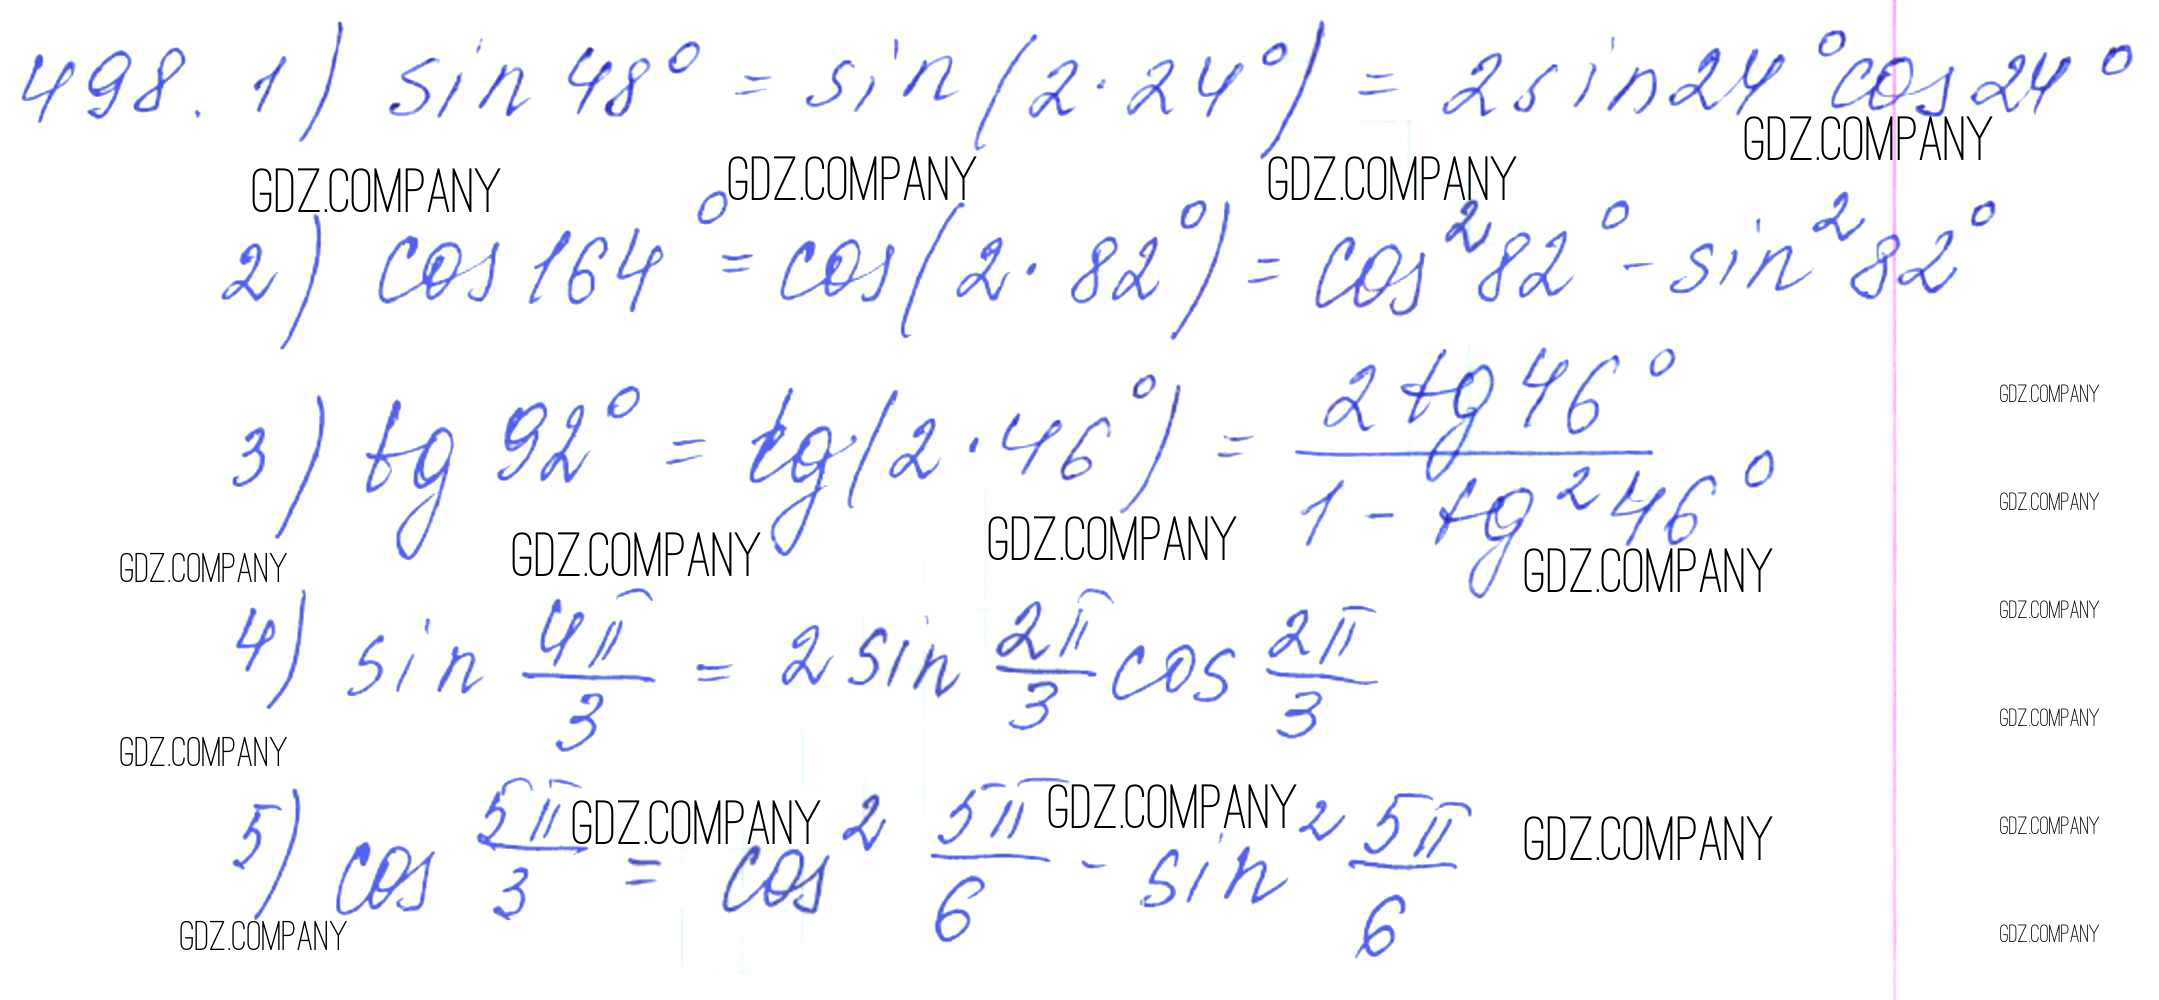 498. 1) sin 48° = sin(2·24°) = 2sin24°cos24°
GDZ.COMPANY
GDZ.COMPANY GDZ.COMPANY GDZ.COMPANY
2) cos 164° = cos(2·82°) = cos²82° - sin²82°
GDZ.COMPANY
3) tg 92° = tg(2·46°) = 2 tg 46° / 1 - tg²46°
GDZ.COMPANY
GDZ.COMPANY GDZ.COMPANY GDZ.COMPANY GDZ.COMPANY
GDZ.COMPANY
4) sin 4π/3 = 2 sin 2π/3 cos 2π/3
GDZ.COMPANY
GDZ.COMPANY
5) cos 5π/3 = cos² 5π/6 - sin² 5π/6
GDZ.COMPANY GDZ.COMPANY GDZ.COMPANY GDZ.COMPANY
GDZ.COMPANY GDZ.COMPANY